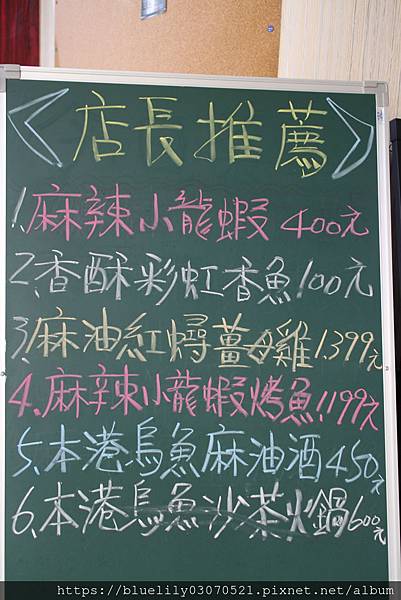 <店長推薦>
1.麻辣小龍蝦 400元
2.香酥彩虹香魚100元
3.麻油紅蟳薑母雞1.399元
4.麻辣小龍蝦烤魚1199元
5.本港烏魚麻油酒450元
6.本港烏魚沙茶火鍋600元
https://bluelily03070521.pixnet.net/album